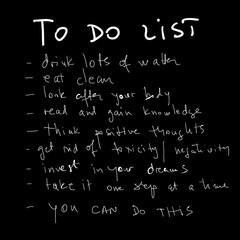 TO DO LIST
- drink lots of water
- eat clean
- look after your body
- read and gain knowledge
- think positive thoughts
- get rid of toxicity/negativity
- invest in your dreams
- take it one step at a time
- YOU CAN DO THIS